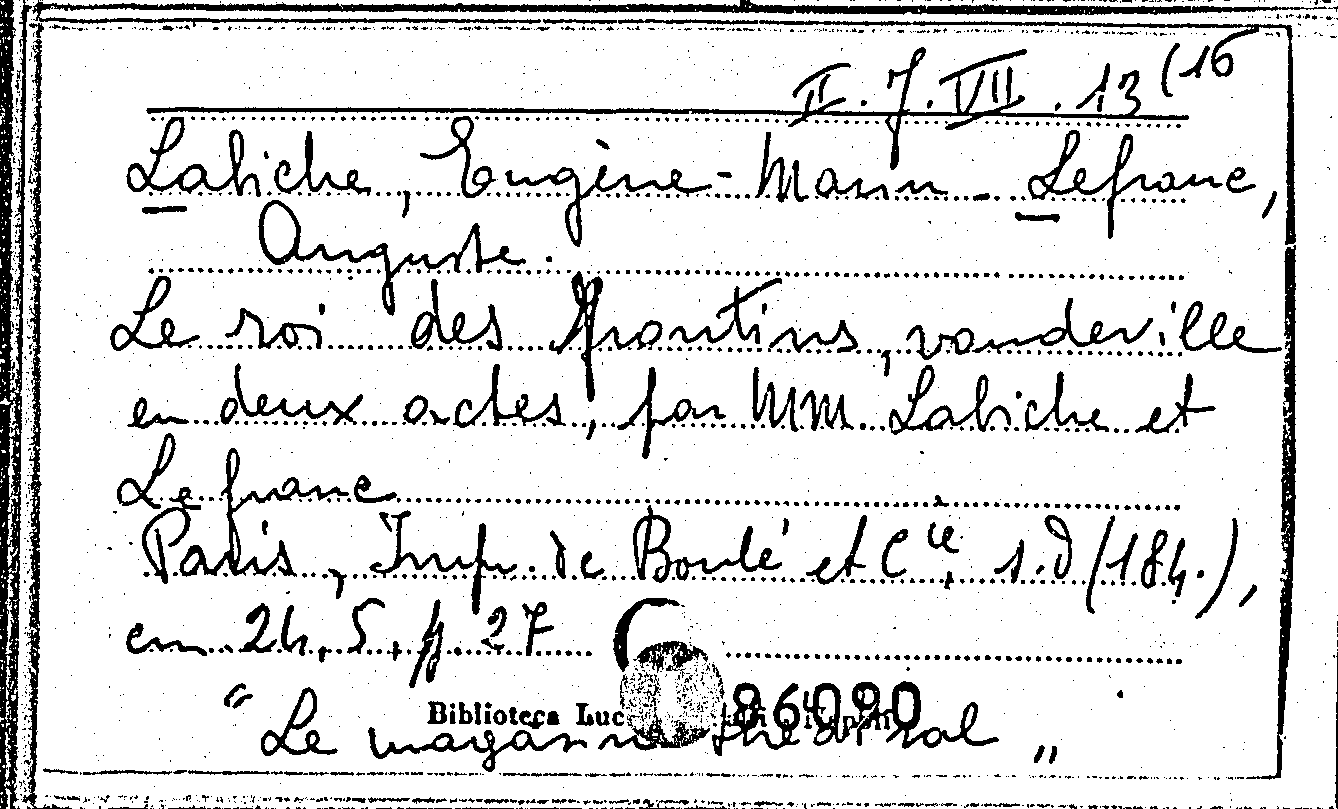 II. 7. VII. 13 (16
Labiche, Eugène-Marin - Lefranc,
Auguste.
Le roi des Frontins, vaudeville
en deux actes, par MM. Labiche et
Lefranc
Paris, Imp. de Boulé et Cie, s.d (184.),
cm 24,5, p. 27
86090
Biblioteca
" Le magasin théatral "